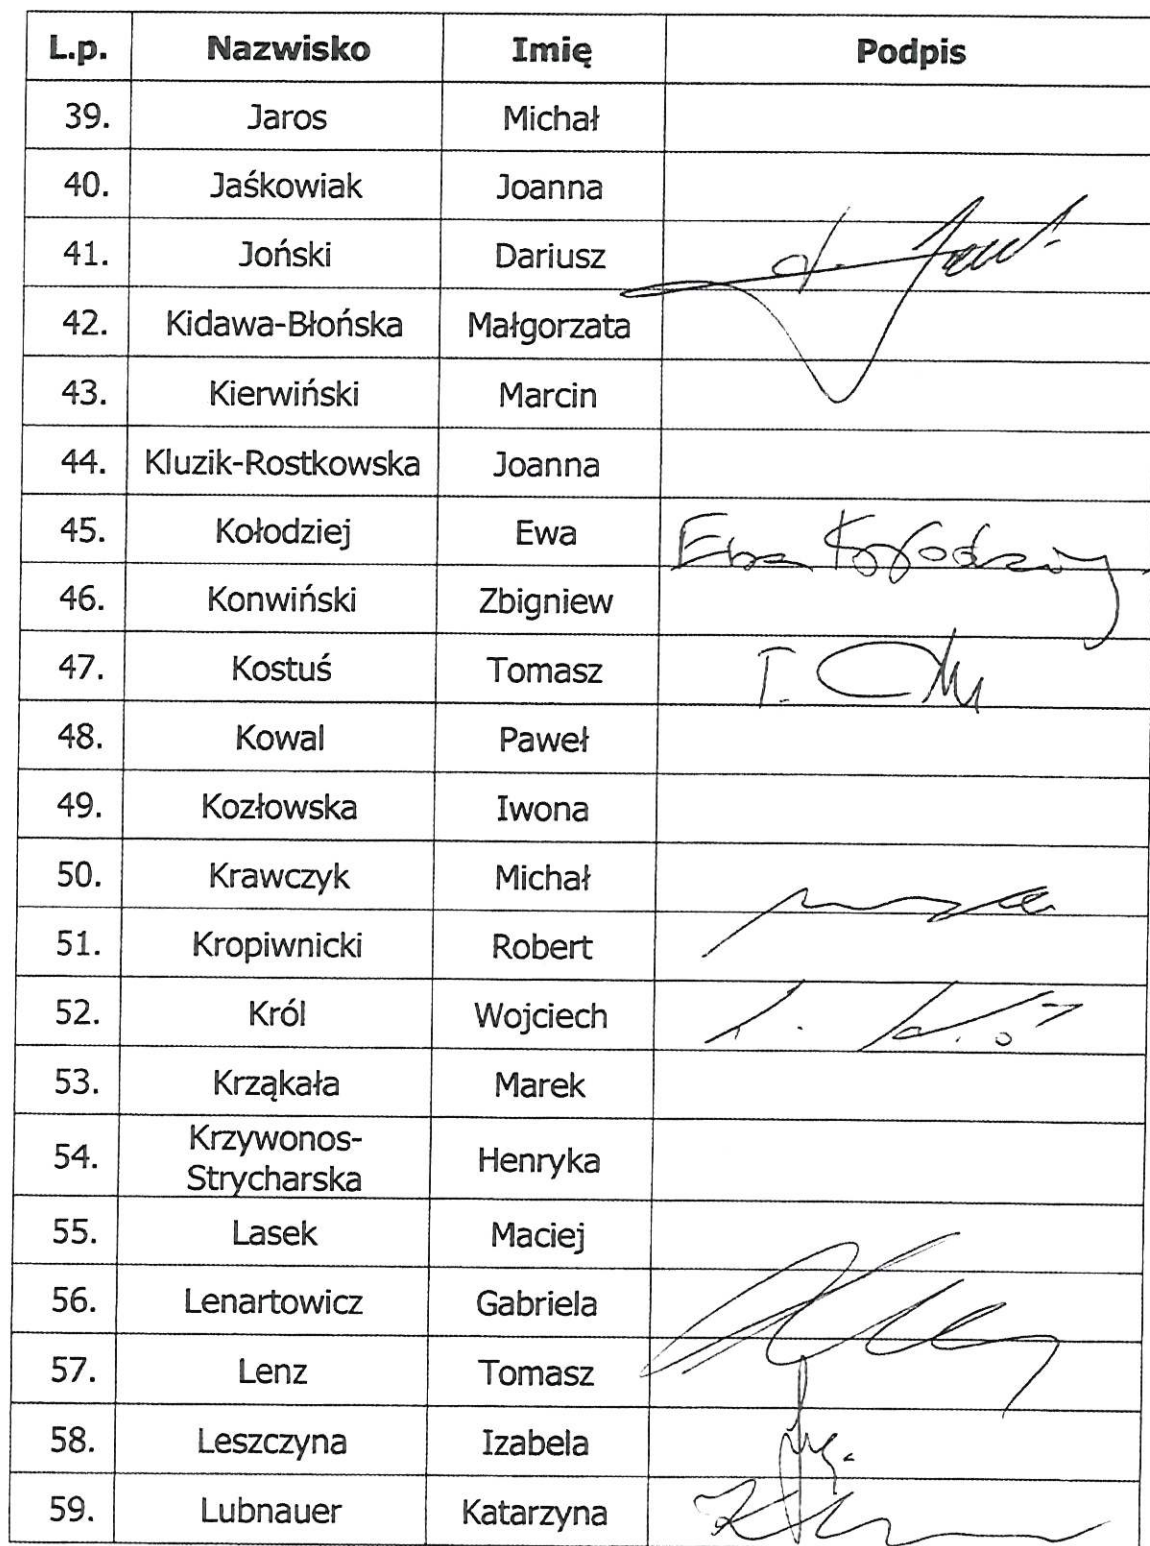 L.p. Nazwisko Imię Podpis
39. Jaros Michał
40. Jaśkowiak Joanna
41. Joński Dariusz
42. Kidawa-Błońska Małgorzata
43. Kierwiński Marcin
44. Kluzik-Rostkowska Joanna
45. Kołodziej Ewa Ewa Kołodziej
46. Konwiński Zbigniew
47. Kostuś Tomasz T.
48. Kowal Paweł
49. Kozłowska Iwona
50. Krawczyk Michał
51. Kropiwnicki Robert
52. Król Wojciech
53. Krząkała Marek
54. Krzywonos-
Strycharska Henryka
55. Lasek Maciej
56. Lenartowicz Gabriela
57. Lenz Tomasz
58. Leszczyna Izabela
59. Lubnauer Katarzyna